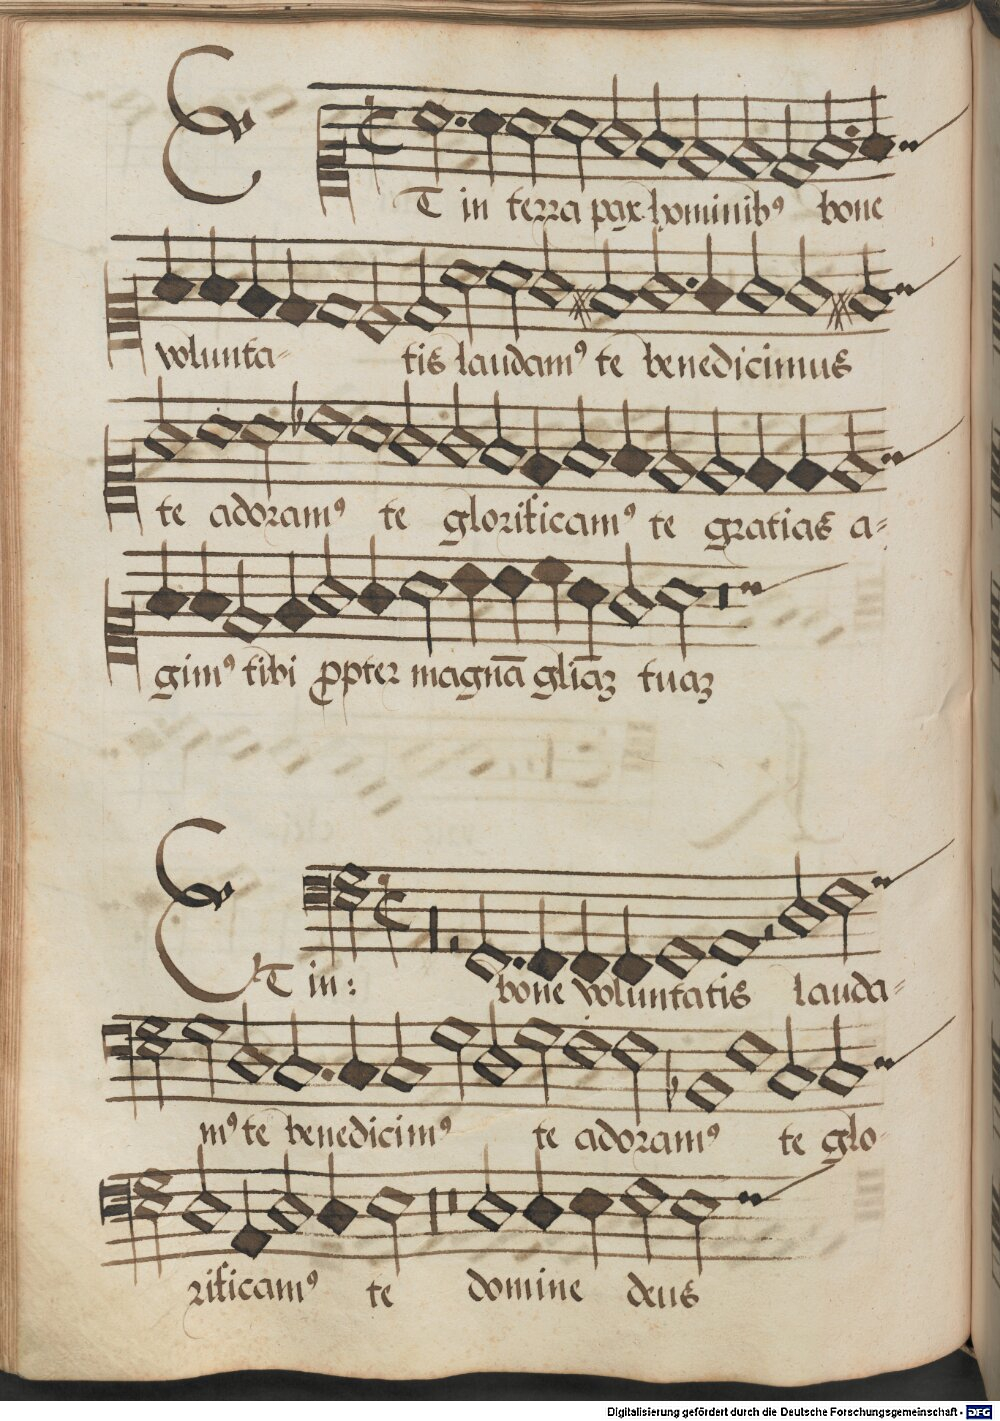 ET in terra pax hominibꝰ bone
volunta- tis laudamꝰ te benedicimus
te adoramꝰ te glorificamꝰ te gratias a-
gimꝰ tibi ꝓpter magnā gliāꝫ tuaꝫ
ET in: bone voluntatis lauda-
mꝰ te benedicimꝰ te adoramꝰ te glo-
rificamꝰ te domine deus
Digitalisierung gefördert durch die Deutsche Forschungsgemeinschaft - DFG